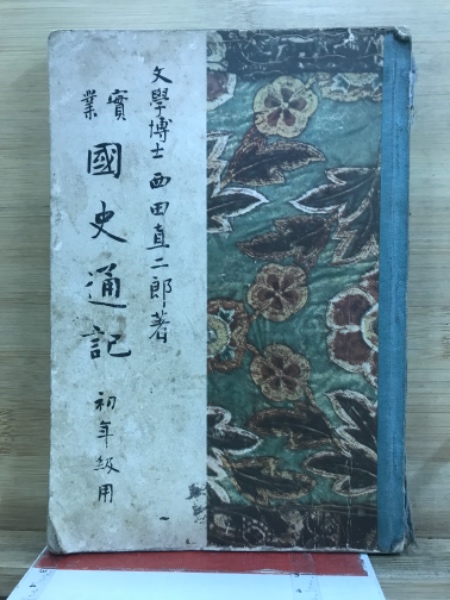 文學博士 西田直二郎著
實業
國史通記 初年級用